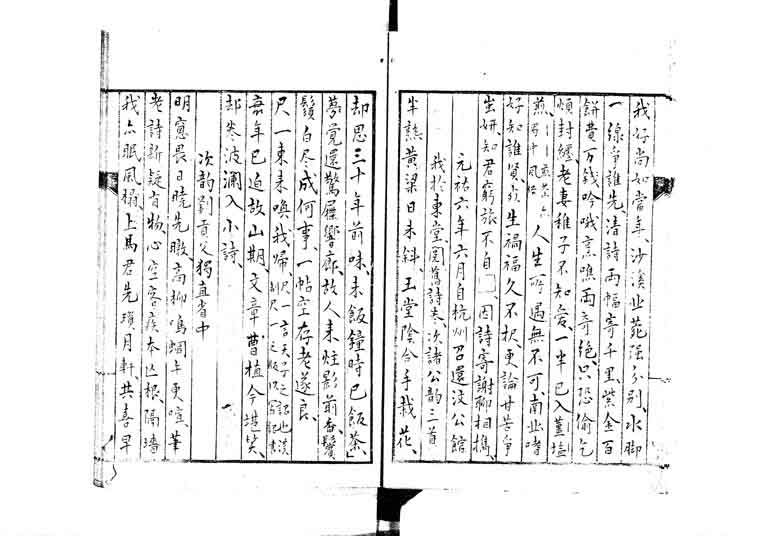 我好尚如當年、沙溪北苑强分別、水脚
一線爭誰先、清詩兩幅寄千里、紫金百
餅費万錢、吟哦烹噍兩奇絕、只恐偷乞
煩封纏、老妻稚子不知愛、一半已入薑塩
煎、人生所遇無不可、南北嗜
好知誰賢、死生禍福久不択、更論甘苦爭
蚩妍、知君窮旅不自□、因詩寄謝聊相攜、
元祐六年六月自杭州召還汶公館
我於東堂閱舊詩巻、次諸公韵三首
半熟黄粱日未斜、玉堂陰合手栽花、
却思三十年前味、未飯鐘時已飯茶、」
夢覚還驚屧響廊、故人来炷影前香、鬢
鬚白尽成何事、一帖空存老遂良、
尺一東来喚我帰、尺一言天子之詔也漢制尺一之版以寫詔書
衰年已迫故山期、文章曹植今堪笑、
却巻波瀾入小詩、
次韵劉貢父獨直省中
明窓畏日曉先暾、高柳鳴蜩午更喧、筆
老詩新疑有物、心空客疾本無根、隔墻
我亦眠風榻、上馬君先鎖月軒、共喜早